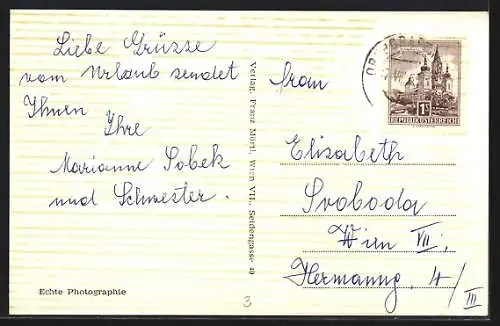 Liebe Grüsse
vom Urlaub sendet
Ihnen
Ihre
Marianne Sobek
und Schwester.
Echte Photographie
Verlag, Franz Mörtl, Wien VII., Seidengasse 40
3
1S
REPUBLIK ÖSTERREICH
Frau
Elisabeth
Svoboda
Wien VII,
Hermanng. 4/
III